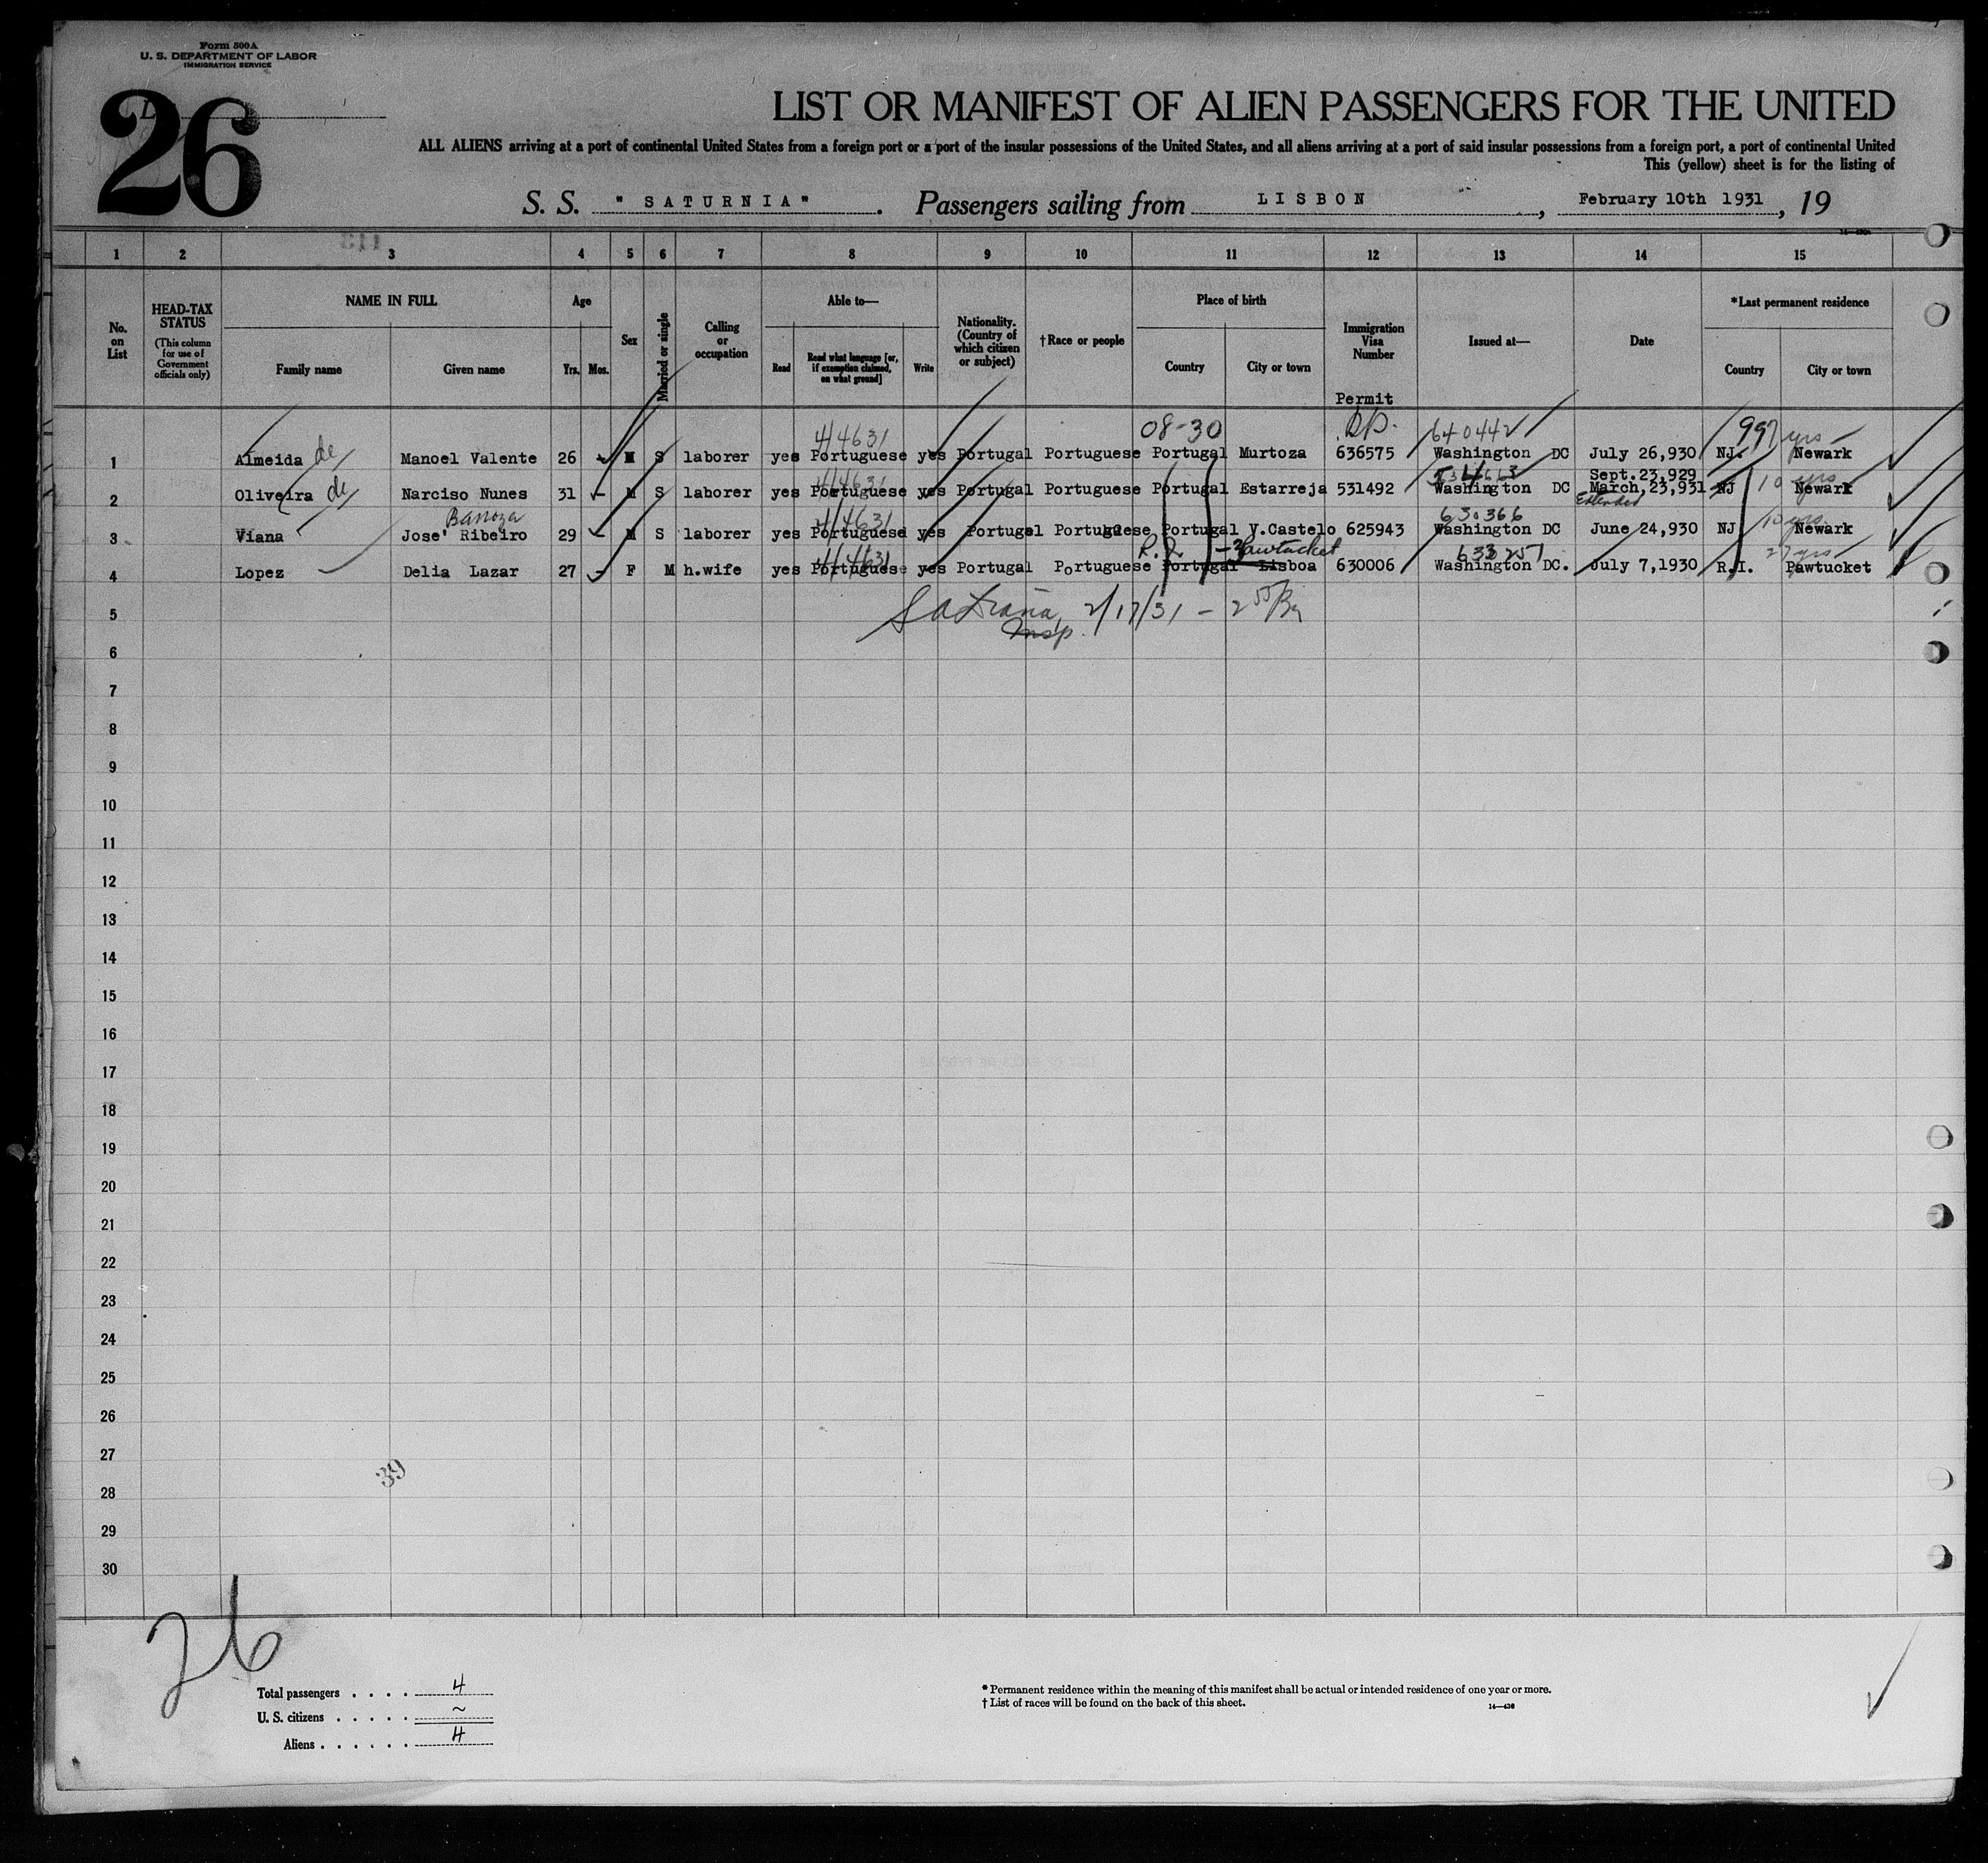 Form 500A
U. S. DEPARTMENT OF LABOR
IMMIGRATION SERVICE
26
LIST OR MANIFEST OF ALIEN PASSENGERS FOR THE UNITED
ALL ALIENS arriving at a port of continental United States from a foreign port or a port of the insular possessions of the United States, and all aliens arriving at a port of said insular possessions from a foreign port, a port of continental United
This (yellow) sheet is for the listing of
S. S. "SATURNIA". Passengers sailing from LISBON, February 10th 1931, 19
113
1 2 3 4 5 6 7 8 9 10 11 12 13 14 15
No. on List
HEAD-TAX STATUS
(This column for use of Government officials only)
NAME IN FULL
Family name Given name
Age
Yrs. Mos.
Sex
Married or single
Calling or occupation
Able to—
Read Read what language [or, if exemption claimed, on what ground] Write
Nationality. (Country of which citizen or subject)
†Race or people
Place of birth
Country City or town
Immigration Visa Number
Permit
Issued at—
Date
*Last permanent residence
Country City or town
4/4631 08-30 640442 yrs
1 Almeida de Manoel Valente 26 - M S laborer yes Portuguese yes Portugal Portuguese Portugal Murtoza 636575 Washington DC July 26,930 NJ. Newark
4/4631 Sept.23,929 10 yrs
2 Oliveira de Narciso Nunes 31 - M S laborer yes Portuguese yes Portugal Portuguese Portugal Estarreja 531492 Washington DC March,23,931 NJ Newark
Extended
Barroza 4/4631 630366 10 yrs.
3 Viana Jose' Ribeiro 29 - M S laborer yes Portuguese yes Portugal Portuguese Portugal V.Castelo 625943 Washington DC June 24,930 NJ Newark
4/4631 R.I. - Pawtucket 633251 27 yrs
4 Lopez Delia Lazar 27 - F M h.wife yes Portuguese yes Portugal Portuguese Portugal Lisboa 630006 Washington DC. July 7,1930 R.I. Pawtucket
5
Insp. 2/17/31 -
6
7
8
9
10
11
12
13
14
15
16
17
18
19
20
21
22
23
24
25
26
27
39
28
29
30
26
Total passengers . . . . 4
U. S. citizens . . . . . ~
Aliens . . . . . . 4
* Permanent residence within the meaning of this manifest shall be actual or intended residence of one year or more.
† List of races will be found on the back of this sheet.
14—430